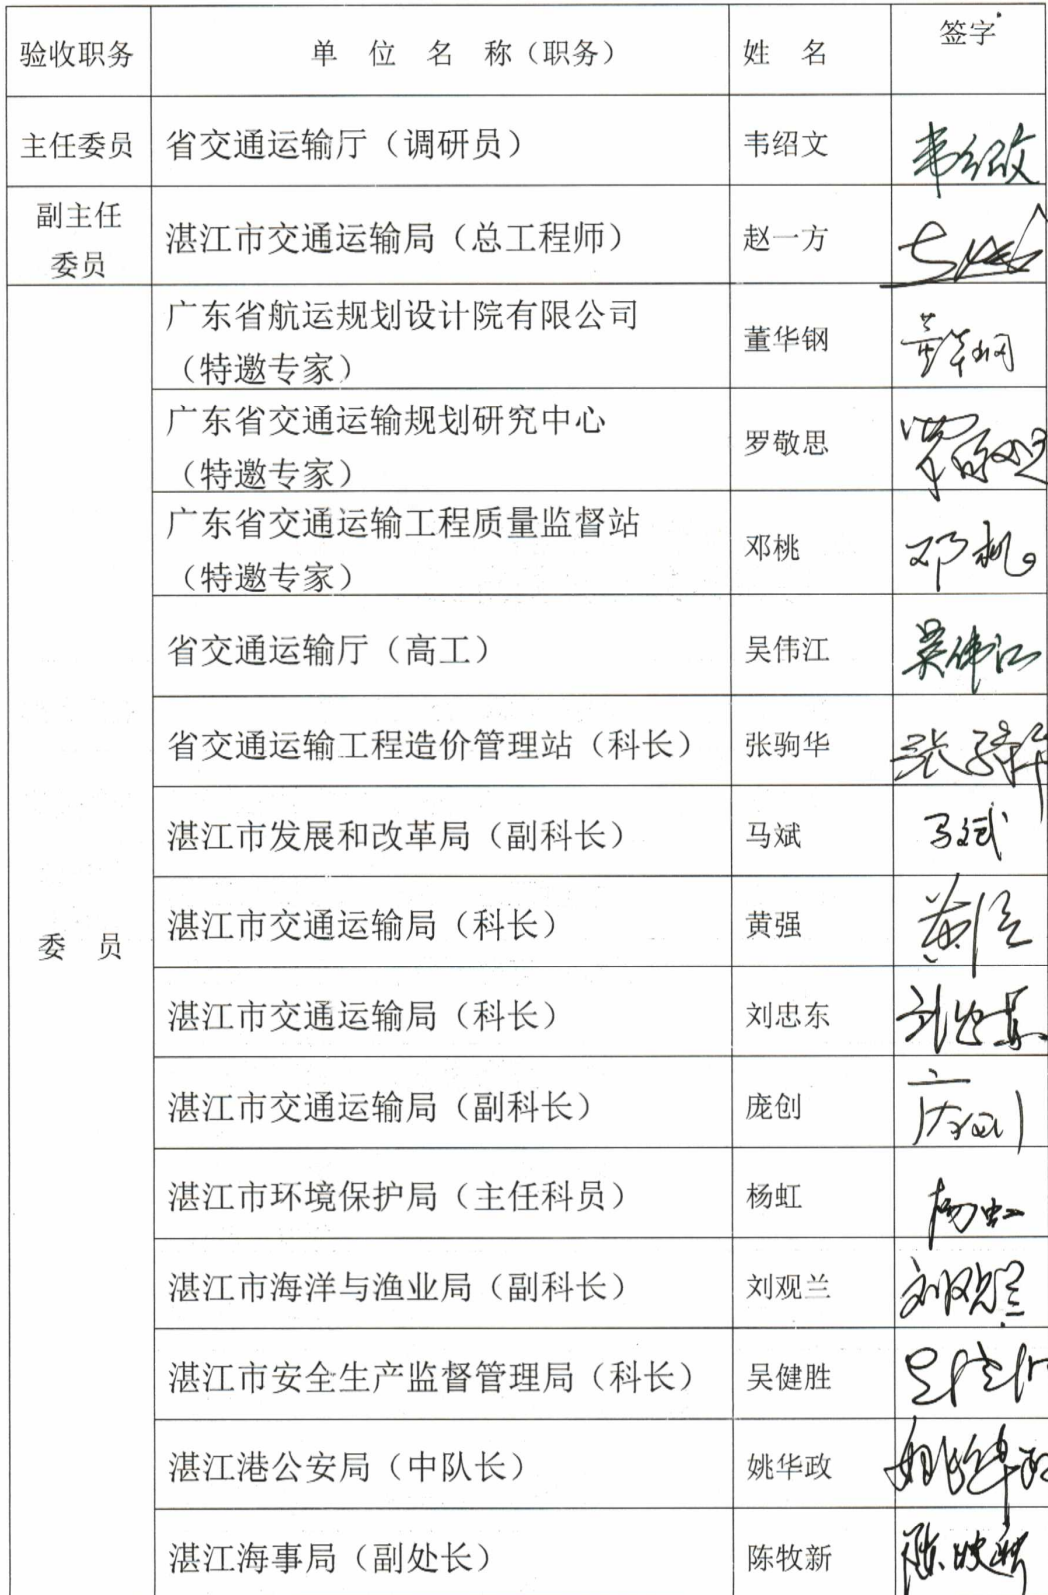 验收职务 单 位 名 称（职务） 姓 名 签字
主任委员 省交通运输厅（调研员） 韦绍文 韦绍文
副主任
委员
湛江市交通运输局（总工程师） 赵一方
广东省航运规划设计院有限公司
（特邀专家）
董华钢 董华钢
广东省交通运输规划研究中心
（特邀专家）
罗敬思
广东省交通运输工程质量监督站
（特邀专家）
邓桃 邓桃
省交通运输厅（高工） 吴伟江 吴伟江
省交通运输工程造价管理站（科长） 张驹华 张
湛江市发展和改革局（副科长） 马斌 马斌
委 员
湛江市交通运输局（科长） 黄强 黄强
湛江市交通运输局（科长） 刘忠东 刘忠东
湛江市交通运输局（副科长） 庞创 庞创
湛江市环境保护局（主任科员） 杨虹 杨虹
湛江市海洋与渔业局（副科长） 刘观兰 刘观兰
湛江市安全生产监督管理局（科长） 吴健胜
湛江港公安局（中队长） 姚华政 姚华政
湛江海事局（副处长） 陈牧新